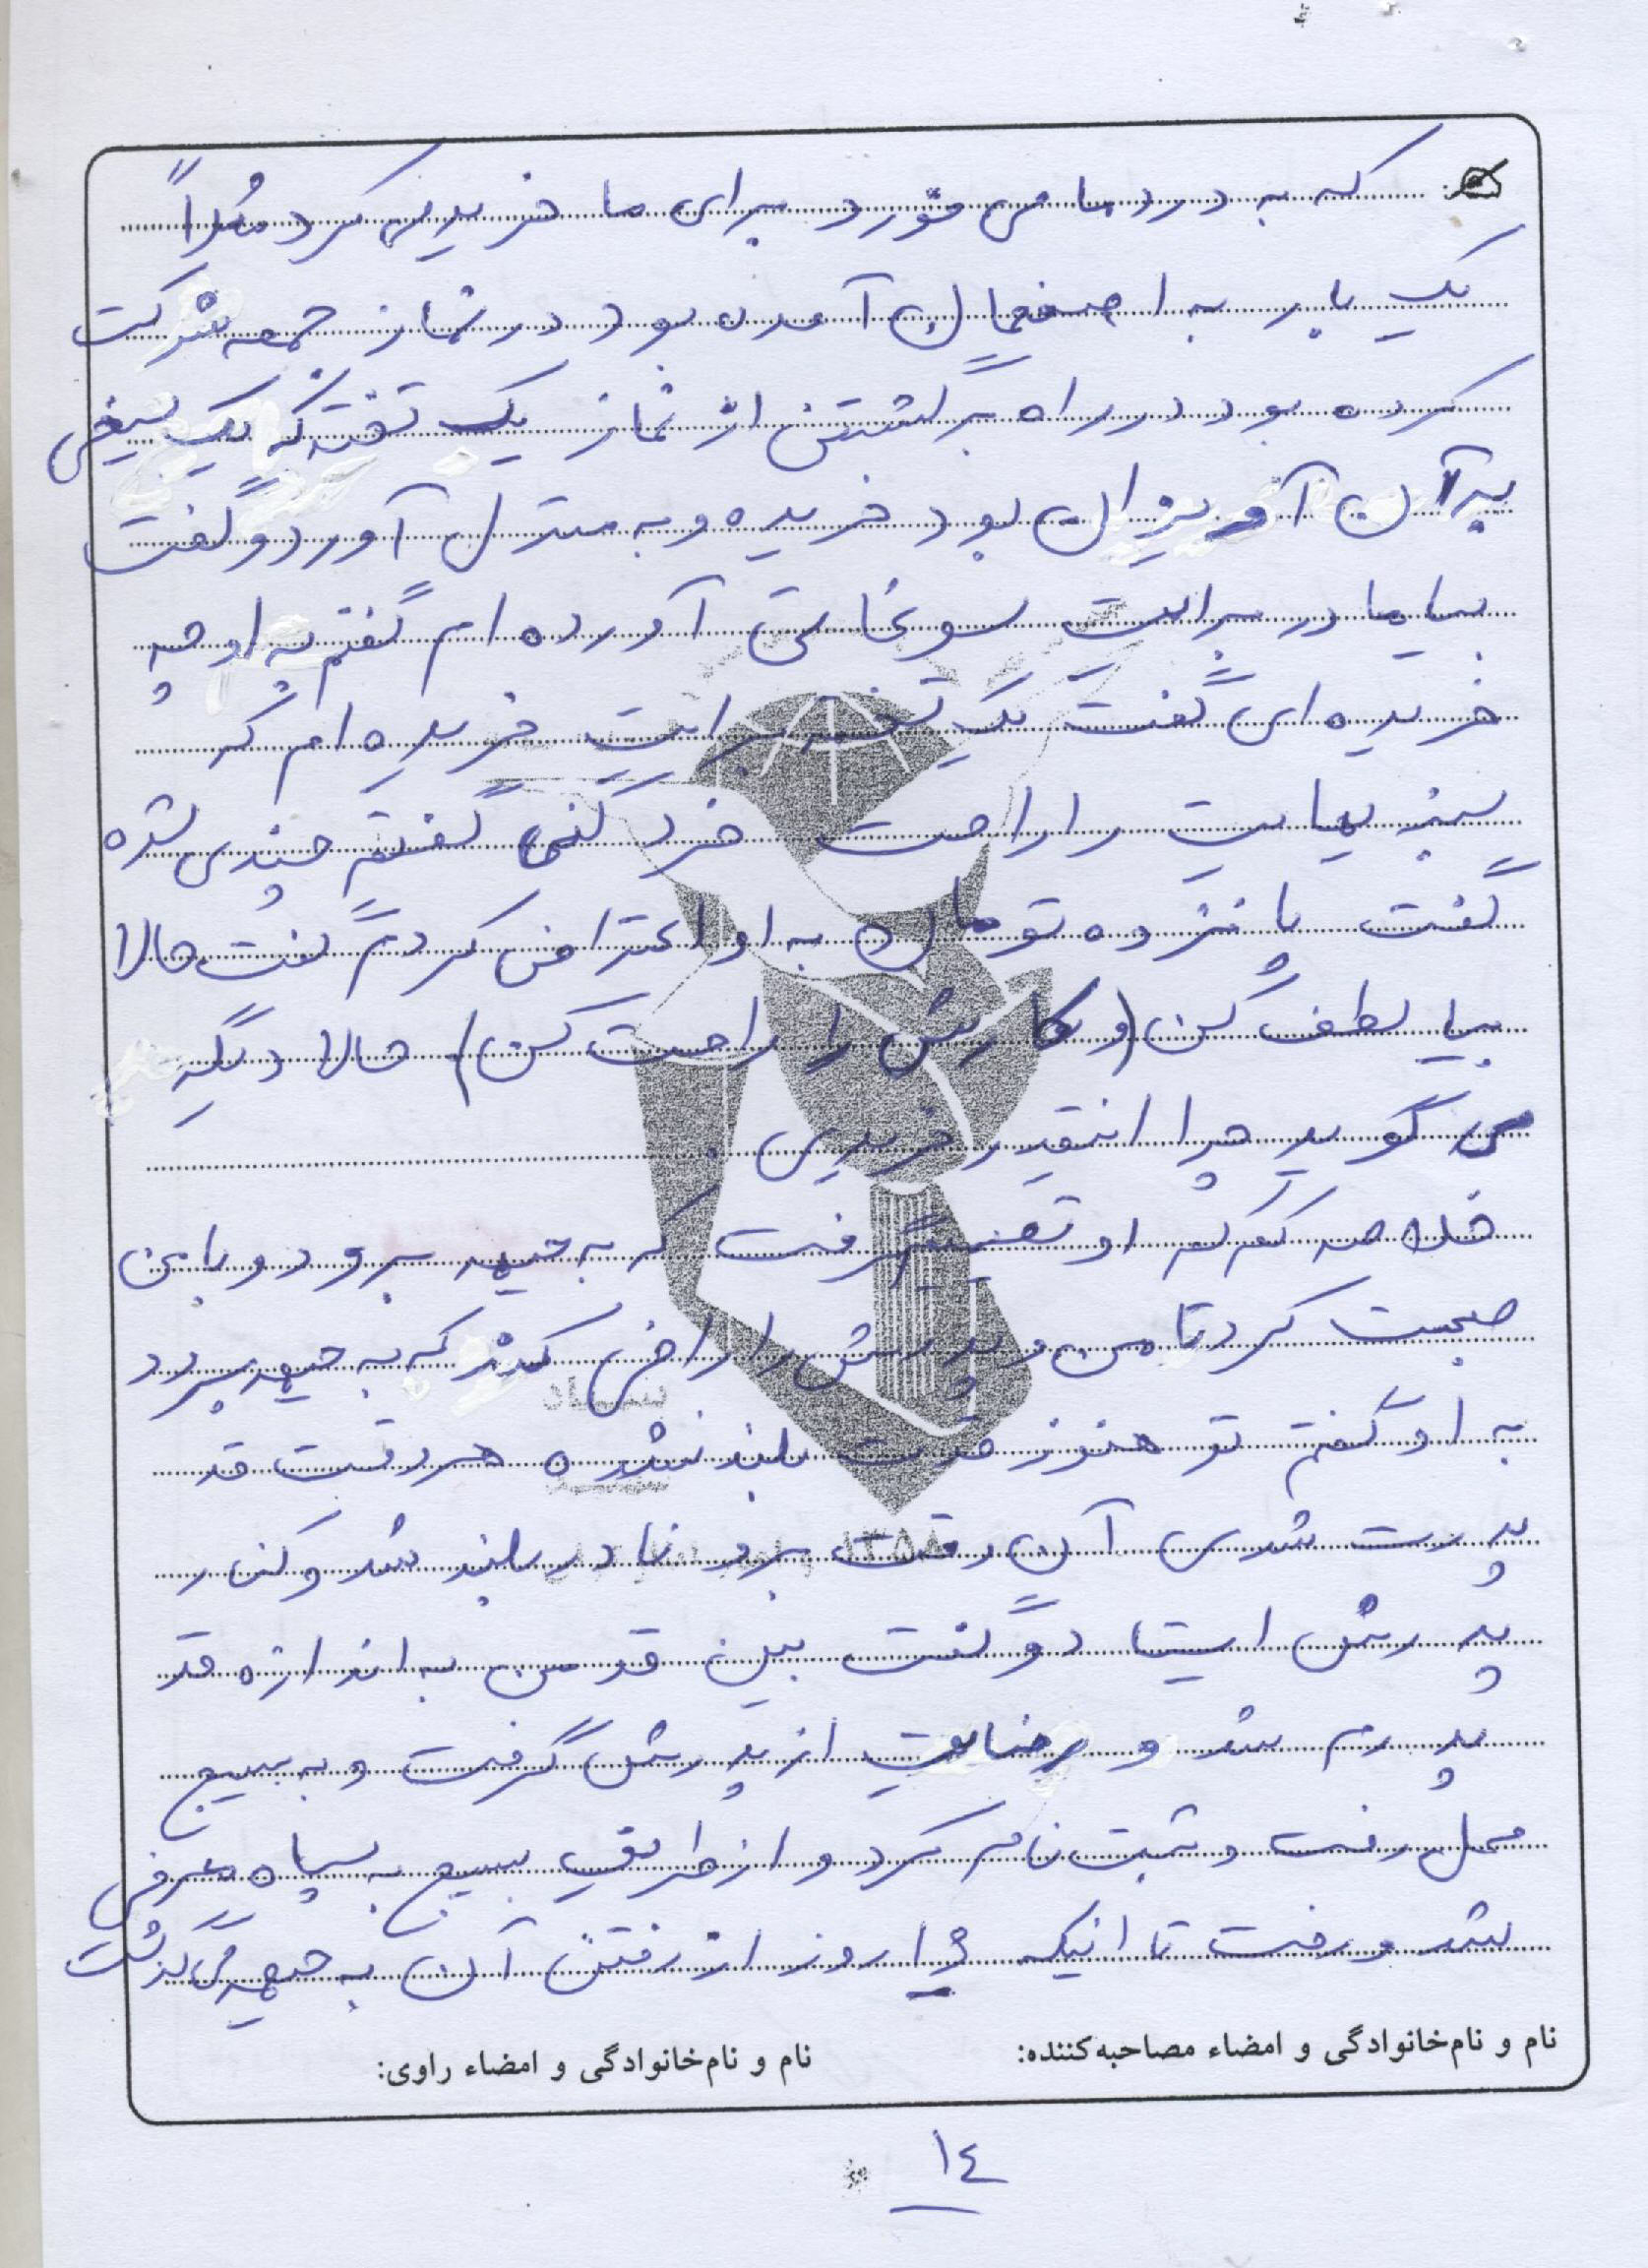 که به درد ما می خورد برای ما خریداری کرد مثلاً
یک بار به اصفهان آمده بود در نماز جمعه شرکت
کرده بود در راه برگشتن از نماز یک تخته که یک سیخی
به آن آویزان بود خریده و به منزل آورد و گفت
بیا مادر برایت سوغاتی آورده ام گفتم به او چه
خریده ای گفت یک تخته برایت خریده ام که
سبزیهایت را راحت خرد کنی گفتم چندی شده
گفت پانزده تومان به او اعتراض کردم گفت حالا
بیا لطف کن (و کارش را راحت کن) حالا دیگر
می گوید چرا انقدر خریدی .
خلاصه که او تصمیم گرفت که به جبهه برود و با من
صحبت کرد تا من و پدرش را راضی کند که به جبهه برود
به او گفتم تو هنوز قدت بلند نشده هر وقت قد
پدرت شدی آن وقت برو نادر بلند شد و کنار
پدرش ایستاد و گفت ببین قد من به اندازه قد
پدرم شد و رضایت از پدرش گرفت و به بسیج
محل رفت و ثبت نام کرد و از طریق بسیج به سپاه معرفی
شد و رفت تا اینکه روز از رفتن آن به جبهه گذشت
نام و نام‌خانوادگی و امضاء مصاحبه‌کننده: نام و نام‌خانوادگی و امضاء راوی:
١٤